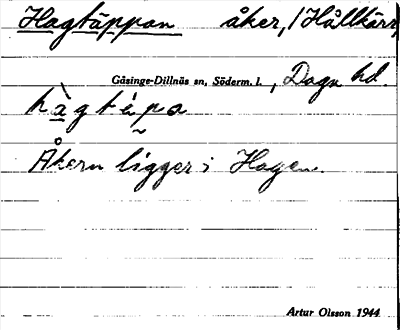 Hagtäppan åker, (Hållkärr,
Gåsinge-Dillnäs sn, Söderm. l., Daga hd.
hàgtépa
Åkern ligger i Hagen.
Artur Olsson 1944